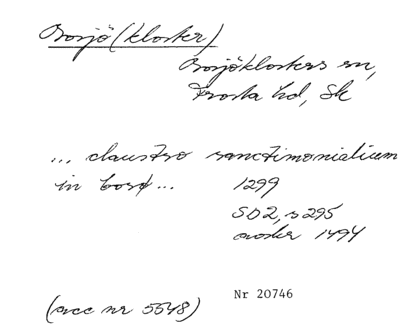 Bosjö (kloster)
Bosjöklosters sn,
Frosta hd, Sk
... claustro sanctimonialium
in bosø... 1299
SD2, s 295
avskr 1494
(acc nr 5548)
Nr 20746